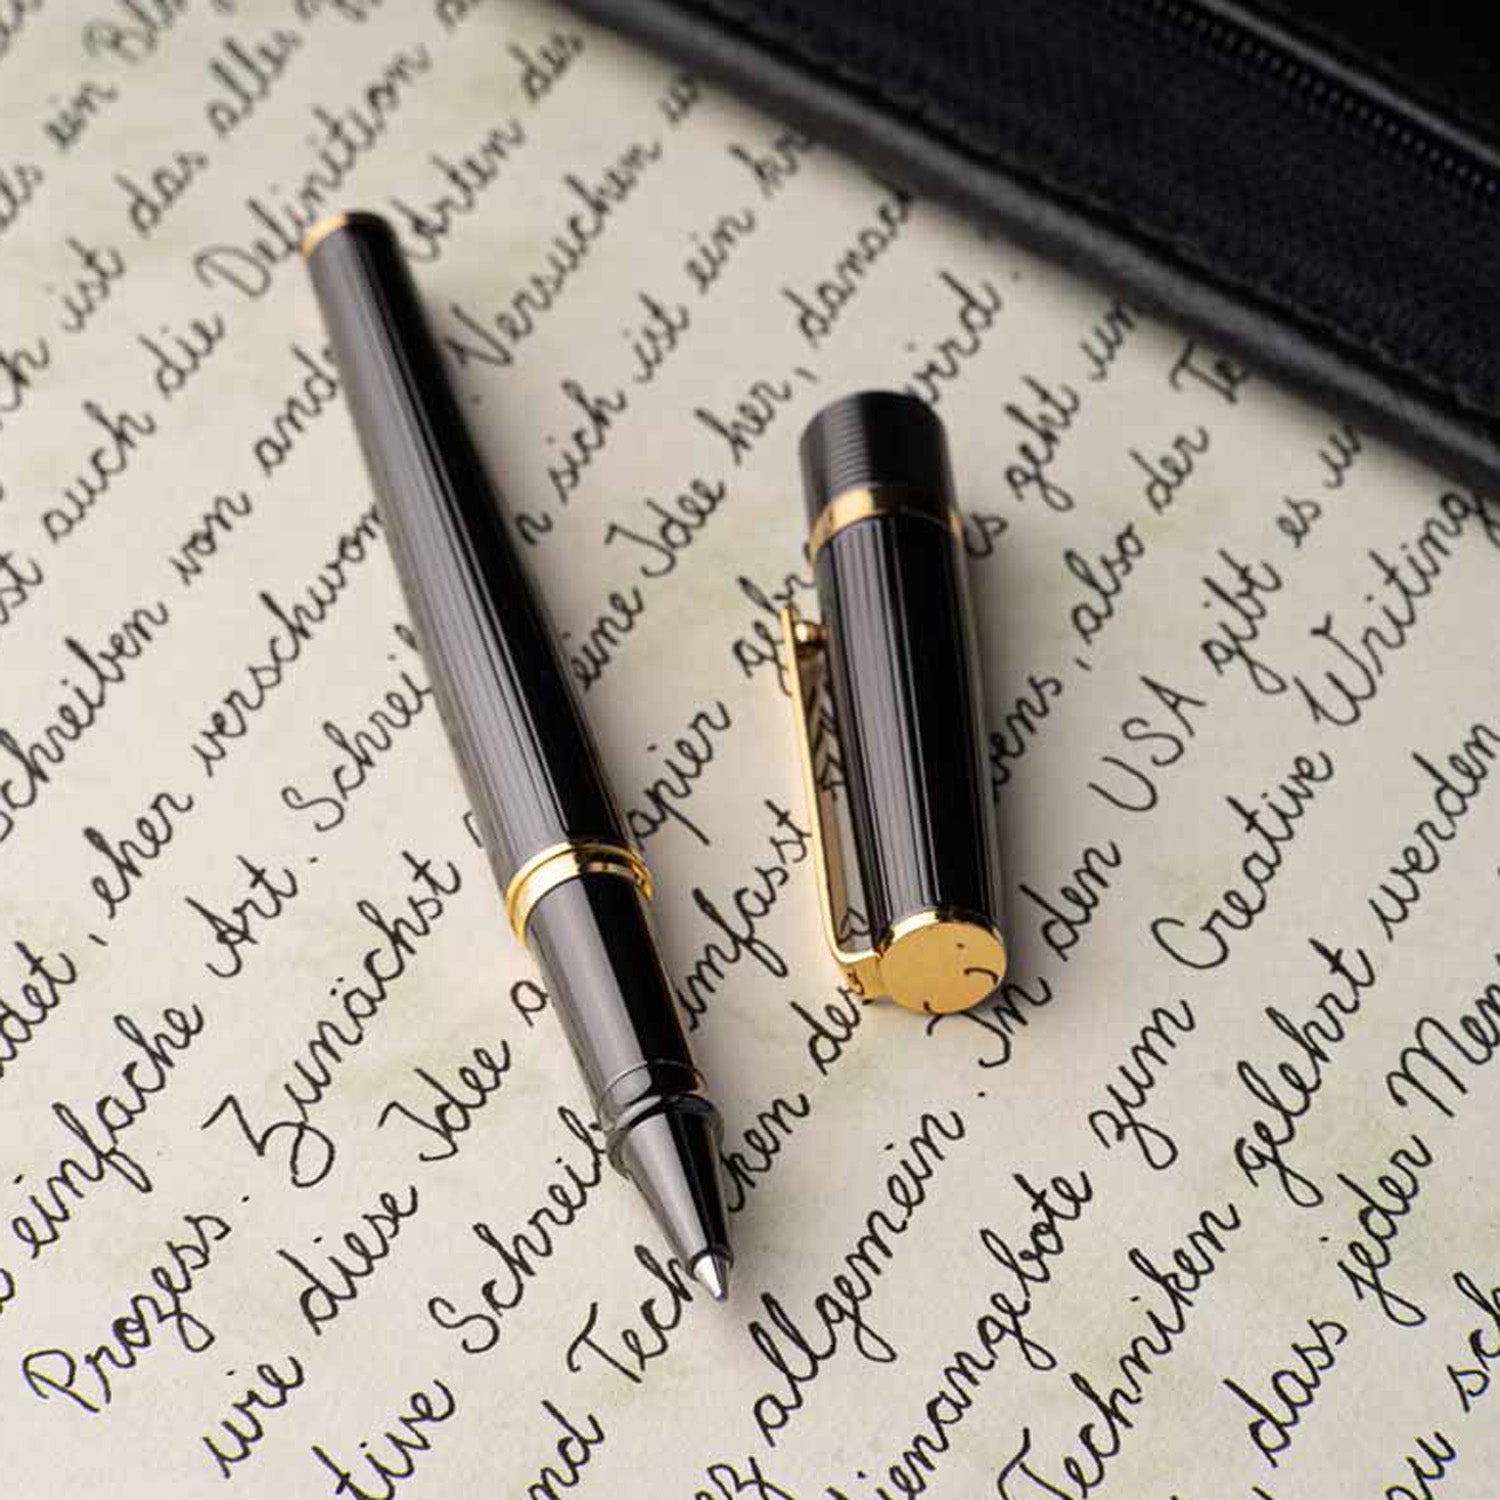 als ein Bl
ch ist das alles
st auch die Definition s
Schreiben von and orten des
det, eher verschwom Versuchen
einfache Art. Schrei n sich ist ein kr
Prozess. Zunächst eine Idee her, danach
wie diese Idee a apier gebr wird.
tive Schreib umfasst es geht um
nd Tech ken der ens, also der Te
allgemein. In den USA gibt es u
ienangebote zum Creative Writing
Techniken gelehrt werden
dass jeder Men
sch